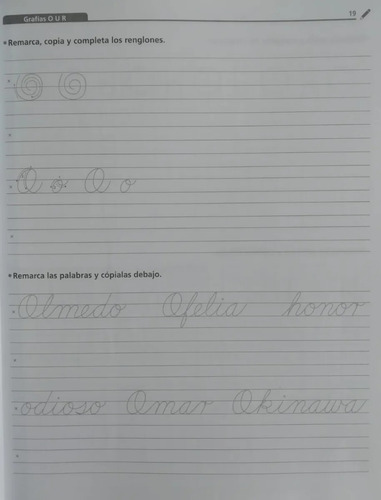 Grafías O U R
19
Remarca, copia y completa los renglones.
O o O o
Remarca las palabras y cópialas debajo.
Olmedo Ofelia honor
odioso Omar Okinawa